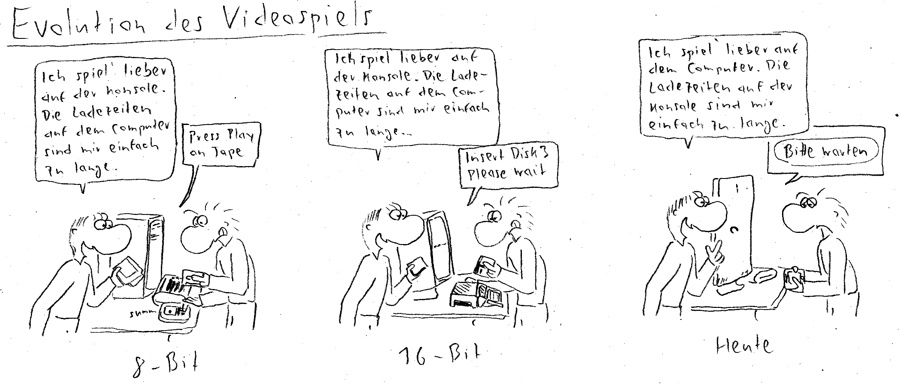 Evolution des Videospiels
Ich spiel' lieber
auf der Konsole.
Die Ladezeiten
auf dem Computer
sind mir einfach
zu lange.
Press Play
on Tape
summ
8-Bit
Ich spiel lieber auf
der Konsole. Die Lade-
zeiten auf dem Com-
puter sind mir einfach
zu lange...
Insert Disk 3
please wait
16-Bit
Ich spiel' lieber auf
dem Computer. Die
Ladezeiten auf der
Konsole sind mir
einfach zu lange.
Bitte warten
Heute